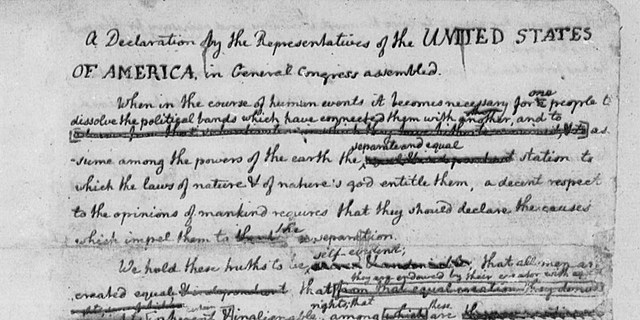 A Declaration by the Representatives of the UNITED STATES
OF AMERICA, in General Congress assembled.
When in the course of human events it becomes necessary for one people to
dissolve the political bands which have connected them with another, and to
as
-sume among the powers of the earth the separate and equal station to
which the laws of nature & of nature's god entitle them, a decent respect
to the opinions of mankind requires that they should declare the causes
which impel them to the separation.
We hold these truths to be self-evident; that all men are
they are endowed by their creator with
created equal that from that equal creation they
rights; that these
inalienable among which are